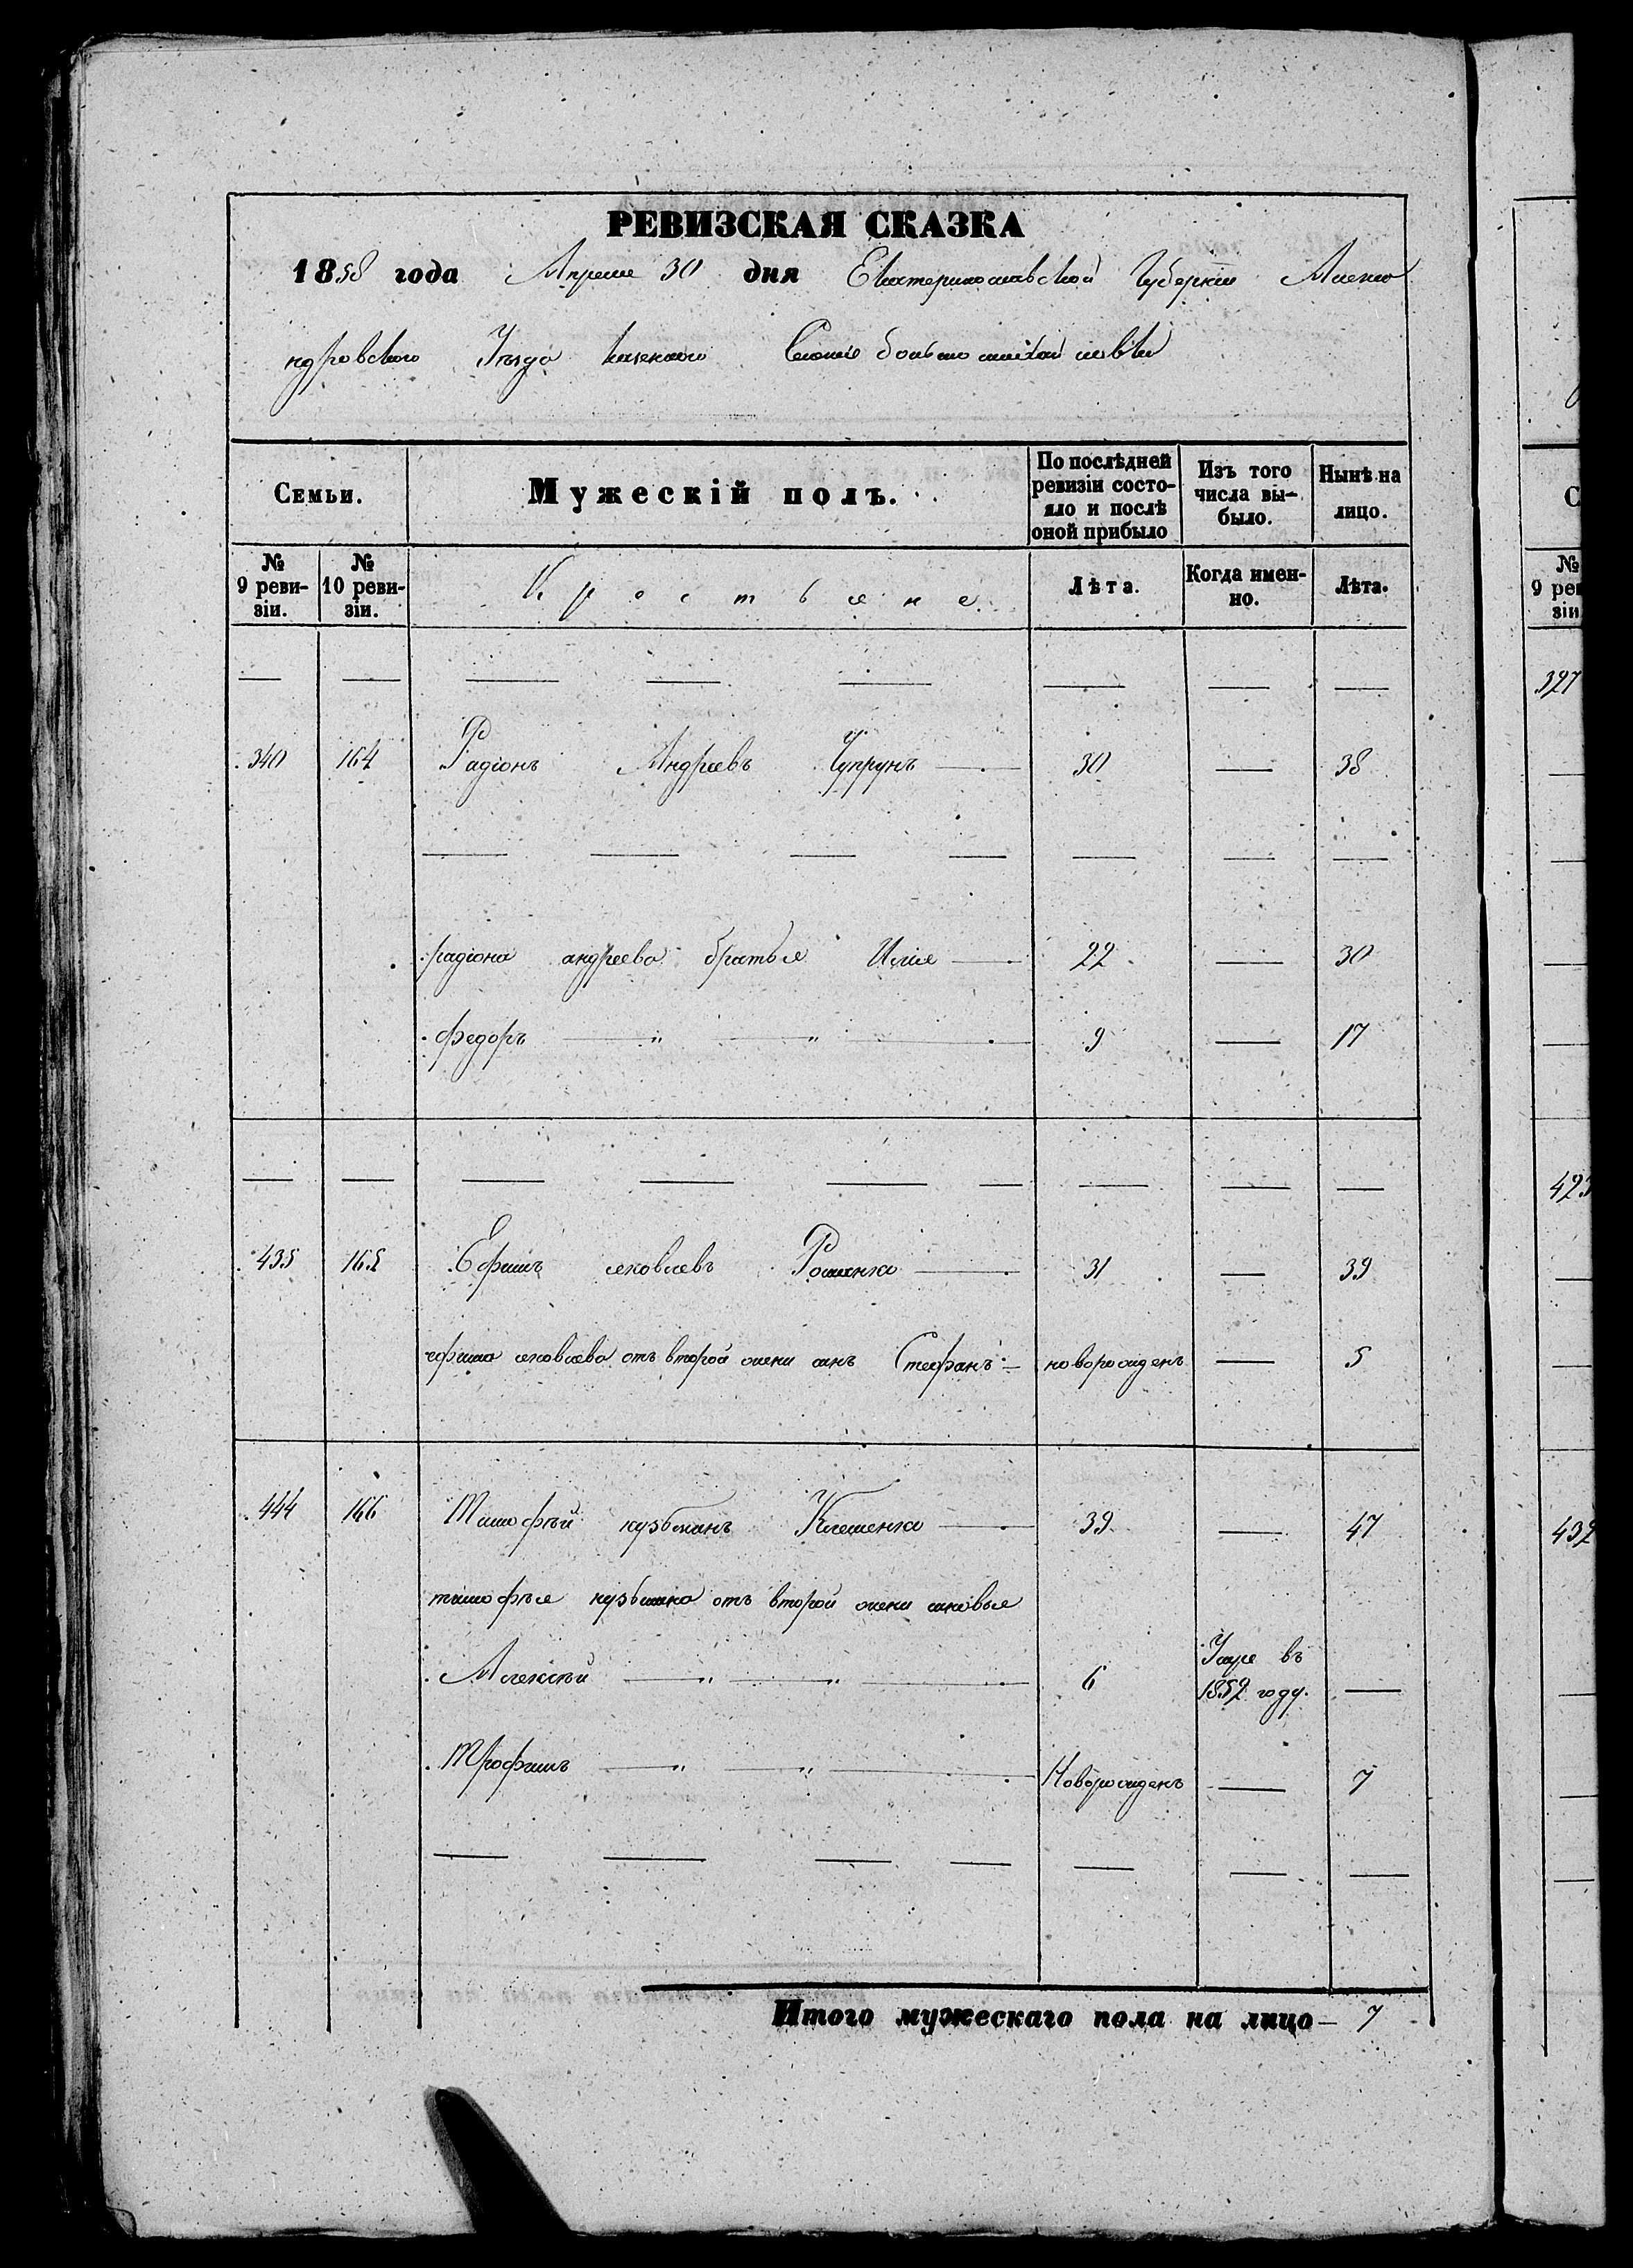 РЕВИЗСКАЯ СКАЗКА
1858 года Апреля 30 дня Екатеринославской Губерніи Алекса
ндровского Уезда казенного Селенія большой михайловки
Семьи.
Мужескій полъ.
По послѣдней ревизіи состояло и послѣ оной прибыло
Изъ того числа выбыло.
Нынѣ на лицо.
№ 9 ревизіи.
№ 10 ревизіи.
Крестьяне.
Лѣта.
Когда именно.
Лѣта.
340 164 Радіонъ Андреевъ Чупрунъ — 30 — 38
радіона андреева братья Илия — 22 — 30
федоръ — " — " — 9 — 17
435 165 Ефимъ яковлевъ Романко — 31 — 39
ефима яковлева отъ второй жени синъ Стефанъ — новорожденъ — 5
444 166 Тимофѣй кузьминъ Клеменко — 39 — 47
тимофѣя кузьмина отъ второй жени синовья
Алексѣй — " — " — 6 Умре въ 1852 году. —
Трофимъ — " — " — Новорожденъ — 7
Итого мужескаго пола на лицо — 7
№
9 рев
зіи
327
423
432